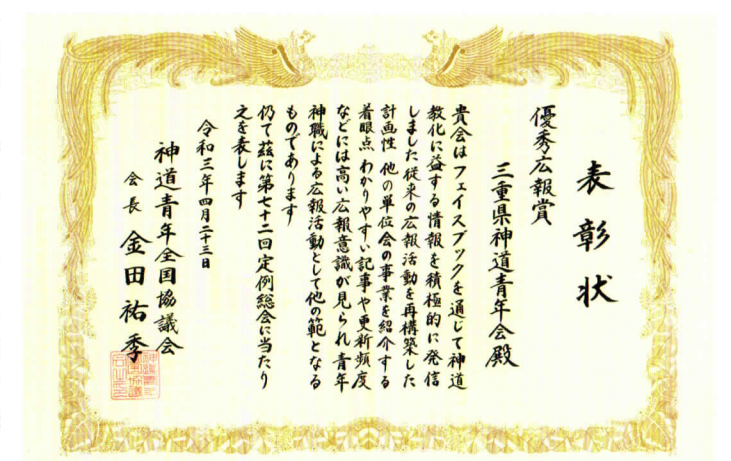 表彰状
優秀広報賞
三重県神道青年会殿
貴会はフェイスブックを通じて神道
教化に益する情報を積極的に発信
しました従来の広報活動を再構築した
計画性 他の単位会の事業を紹介する
着眼点 わかりやすい記事や更新頻度
などには高い広報意識が見られ 青年
神職による広報活動として他の範となる
ものであります
仍て茲に第七十二回定例総会に当たり
之を表します
令和三年四月二十三日
神道青年全国協議会
会長 金田祐季